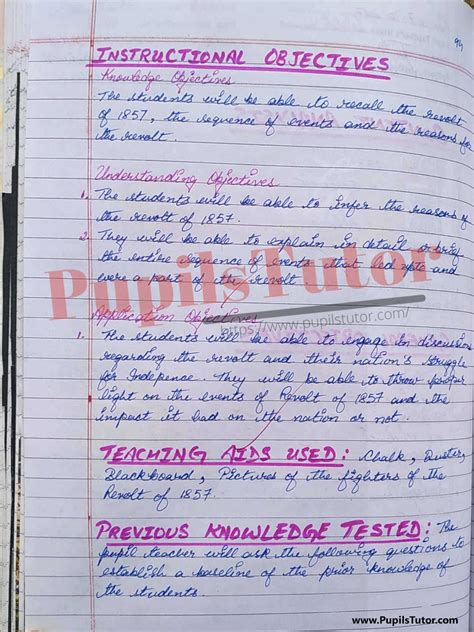 94
INSTRUCTIONAL OBJECTIVES
Knowledge Objectives
The students will be able to recall the revolt
of 1857, the sequence of events and the reasons for
the revolt.
Understanding Objectives
1. The students will be able to infer the reasons of
the revolt of 1857.
2. They will be able to explain in detail or brief
the entire sequence of events that led into and
were a part of the revolt
PupilsTutor
https://www.pupilstutor.com/
Application Objectives
1. The students will be able to engage in discussion
regarding the revolt and their nation's struggle
for Indepence. They will be able to throw proper
light on the events of Revolt of 1857 and the
impact it had on the nation or not.
TEACHING AIDS USED: Chalk, Duster,
Blackboard, Pictures of the fighters of the
Revolt of 1857.
PREVIOUS KNOWLEDGE TESTED: The
pupil teacher will ask the following questions to
establish a baseline of the prior knowledge of
the students.
www.PupilsTutor.com